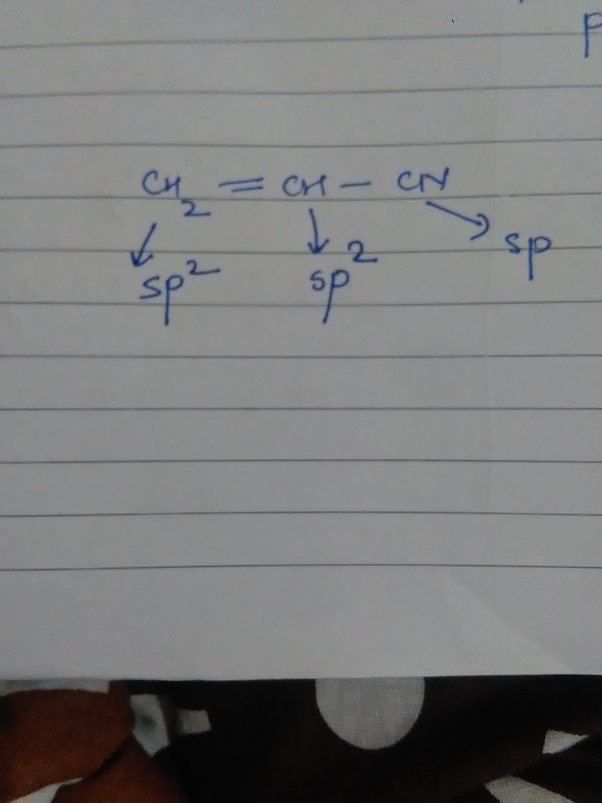 P
CH₂ = CH — CN
sp² sp² sp